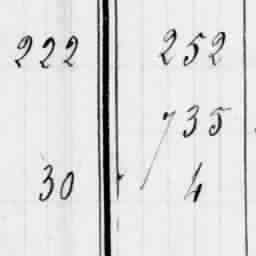 222 252
735
30 4